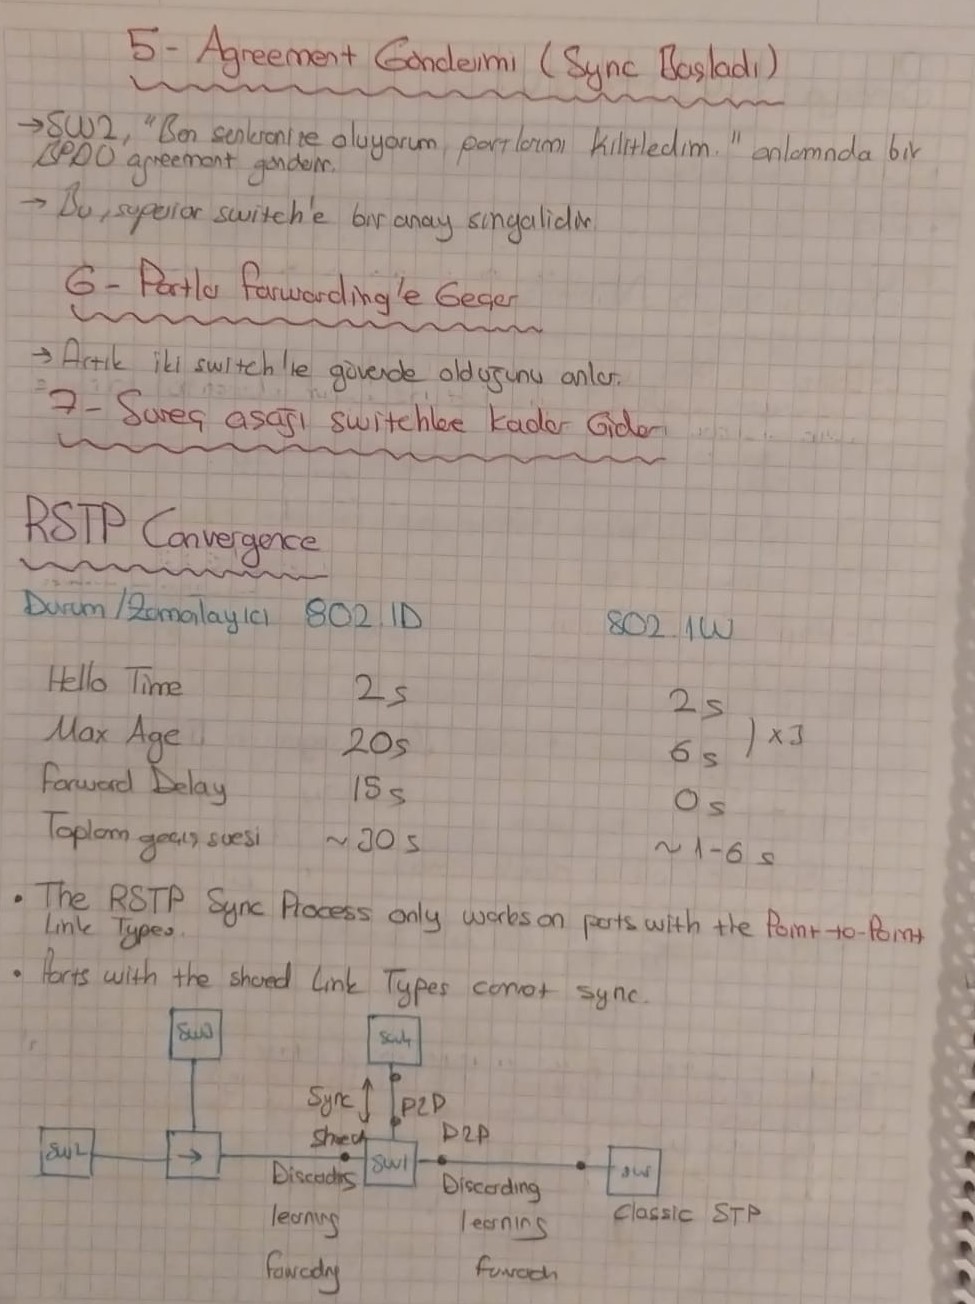 5- Agreement Gönderimi (Sync Başladı)
→ SW2, "Ben senkronize oluyorum, portlarımı kilitledim." anlamında bir
BPDU agreement gönderir.
→ Bu, superior switch'e bir onay singalidir.
6- Portlar Forwarding'e Geçer
→ Artık iki switch'te güvende olduğunu anlar.
7- Süreç aşağı switchlere kadar Gider
RSTP Convergence
Durum/Zamanlayıcı 802.1D 802.1W
Hello Time 2s 2s
Max Age 20s 6s ) x3
Forward Delay 15s 0s
Toplam geçiş süresi ~30s ~1-6 s
• The RSTP Sync Process only works on ports with the Point-to-Point
Link Types.
• Ports with the shared Link Types cannot sync.
SW3 SW4
Sync P2P
Shared P2P
SW2 → SW1 SW
Discarding Discarding
learning learning Classic STP